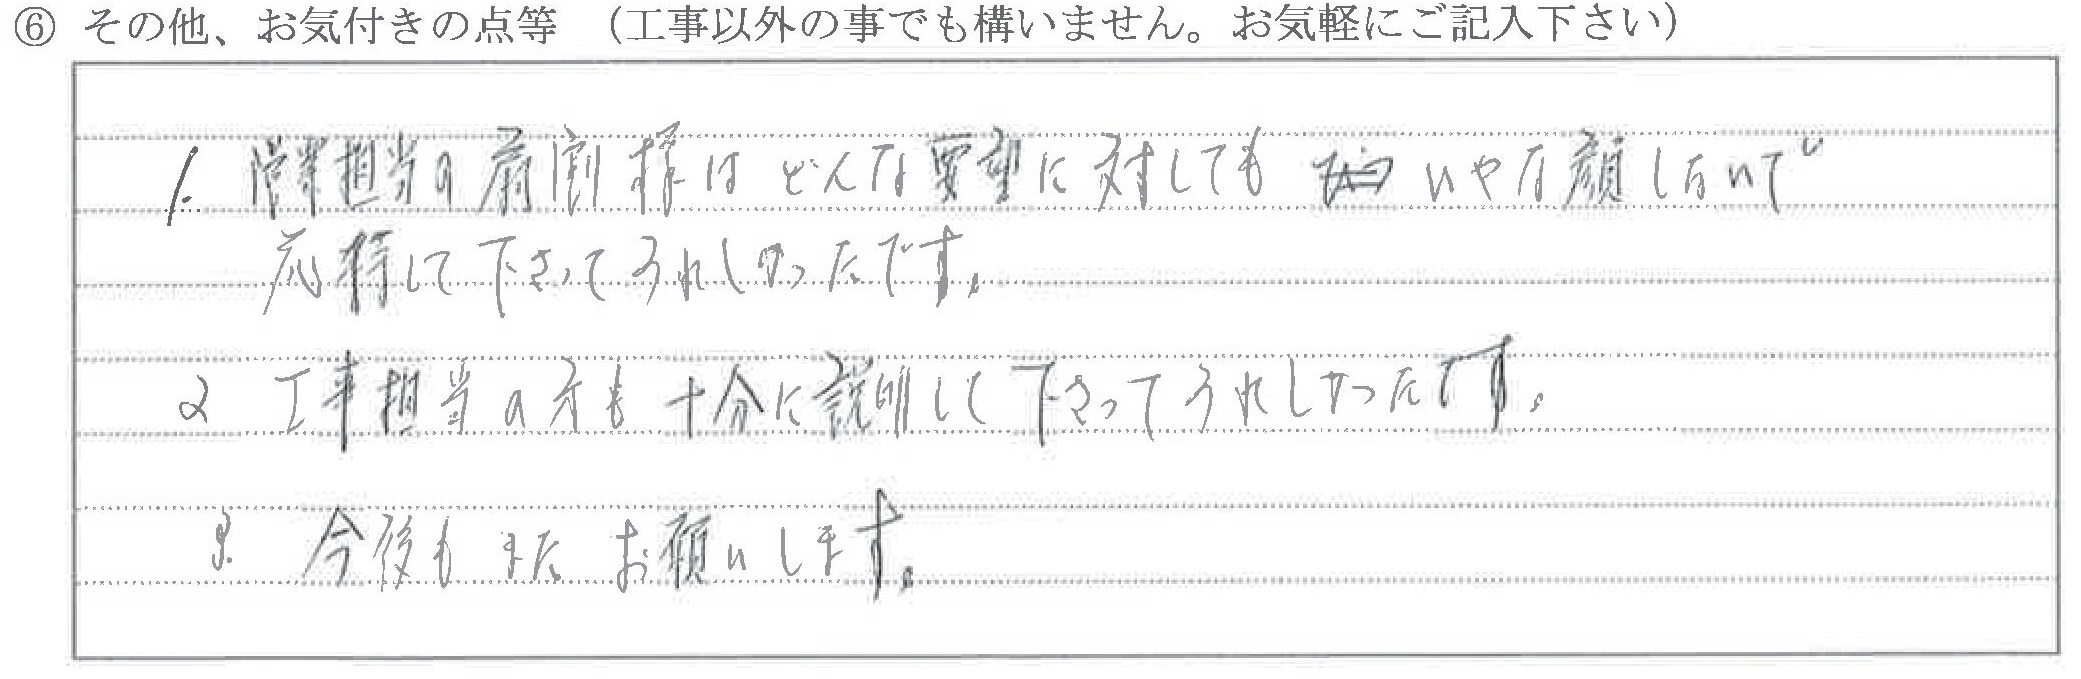 ⑥ その他、お気付きの点等 （工事以外の事でも構いません。お気軽にご記入下さい）
1. 担当の 様は どんな要望に対しても いやな顔しないで
応待して下さってうれしかったです。
2 工事担当の方も十分に説明して下さってうれしかったです。
3. 今後もまたお願いします。